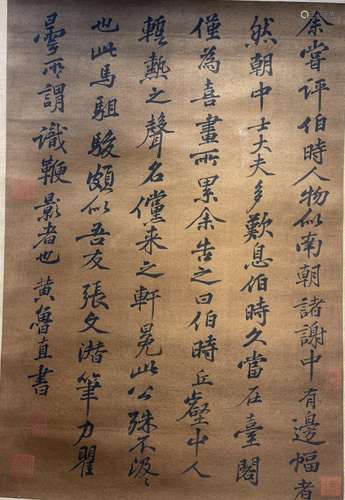 余嘗評伯時人物似南朝諸謝中有邊幅者
然朝中士大夫多歎息伯時久當在臺閣
僅為喜畫所累余告之曰伯時丘壑中人
暫熱之聲名儻來之軒冕此公殊不汲汲
也此馬駔駿頗似吾友張文潛筆力瞿
曇所謂識鞭影者也黃魯直書